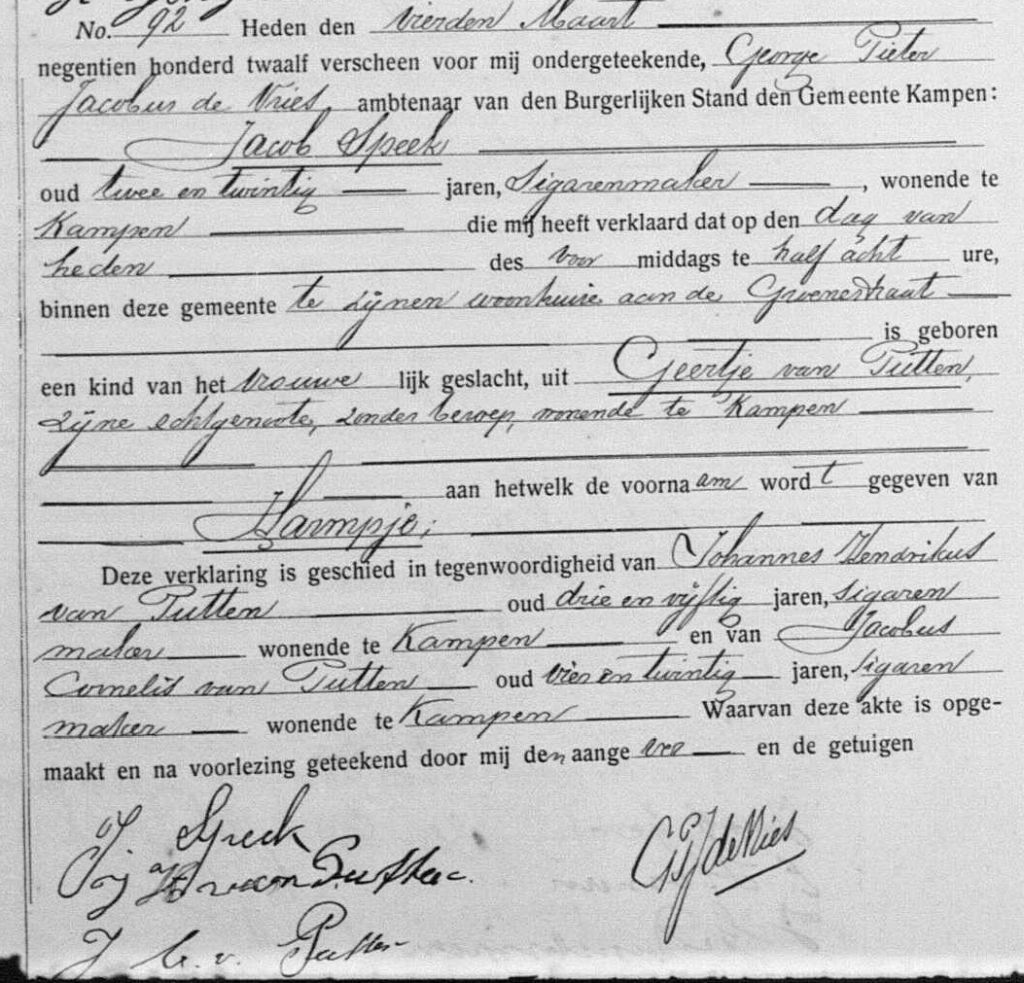 No. 92 Heden den vierden Maart
negentien honderd twaalf verscheen voor mij ondergeteekende, George Pieter
Jacobus de Vries, ambtenaar van den Burgerlijken Stand den Gemeente Kampen:
Jacob Speek
oud twee en twintig jaren, Sigarenmaker, wonende te
Kampen die mij heeft verklaard dat op den dag van
heden des voor middags te half acht ure,
binnen deze gemeente te zijnen woonhuize aan de Groenestraat
is geboren
een kind van het vrouwe lijk geslacht, uit Geertje van Putten,
zijne echtgenoote, zonder beroep, wonende te Kampen
aan hetwelk de voornaam wordt gegeven van
Harmpje;
Deze verklaring is geschied in tegenwoordigheid van Johannes Hendrikus
van Putten oud drie en vijftig jaren, sigaren
maker wonende te Kampen en van Jacobus
Cornelis van Putten oud vier en twintig jaren, sigaren
maker wonende te Kampen Waarvan deze akte is opge-
maakt en na voorlezing geteekend door mij den aange ver en de getuigen
J. Speek
GPJ de Vries
J H van Putten.
J C. v. Putten